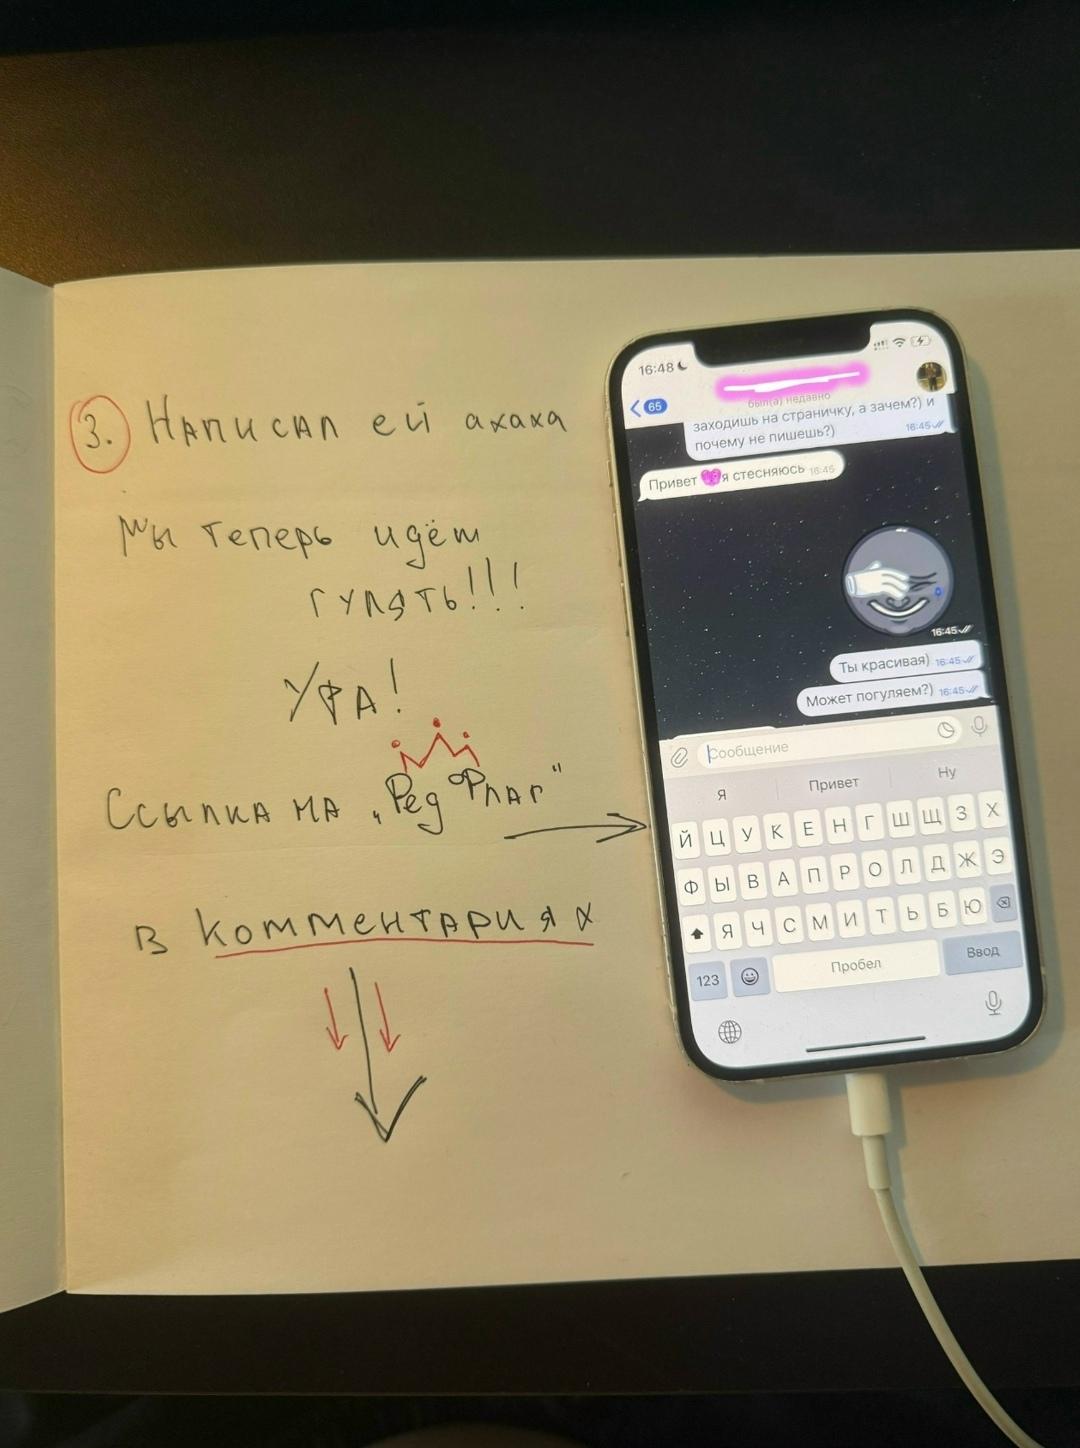 3. Написал ей ахаха
Мы теперь идём
гулять!!!
Ура!
Ссылка на „Ред Флаг"
в комментариях
16:48
65
был(а) недавно
заходишь на страничку, а зачем?) и
почему не пишешь?) 16:45
Привет я стесняюсь 16:45
16:45
Ты красивая) 16:45
Может погуляем?) 16:45
Сообщение
Я Привет Ну
Й Ц У К Е Н Г Ш Щ З Х
Ф Ы В А П Р О Л Д Ж Э
Я Ч С М И Т Ь Б Ю
123 Пробел Ввод